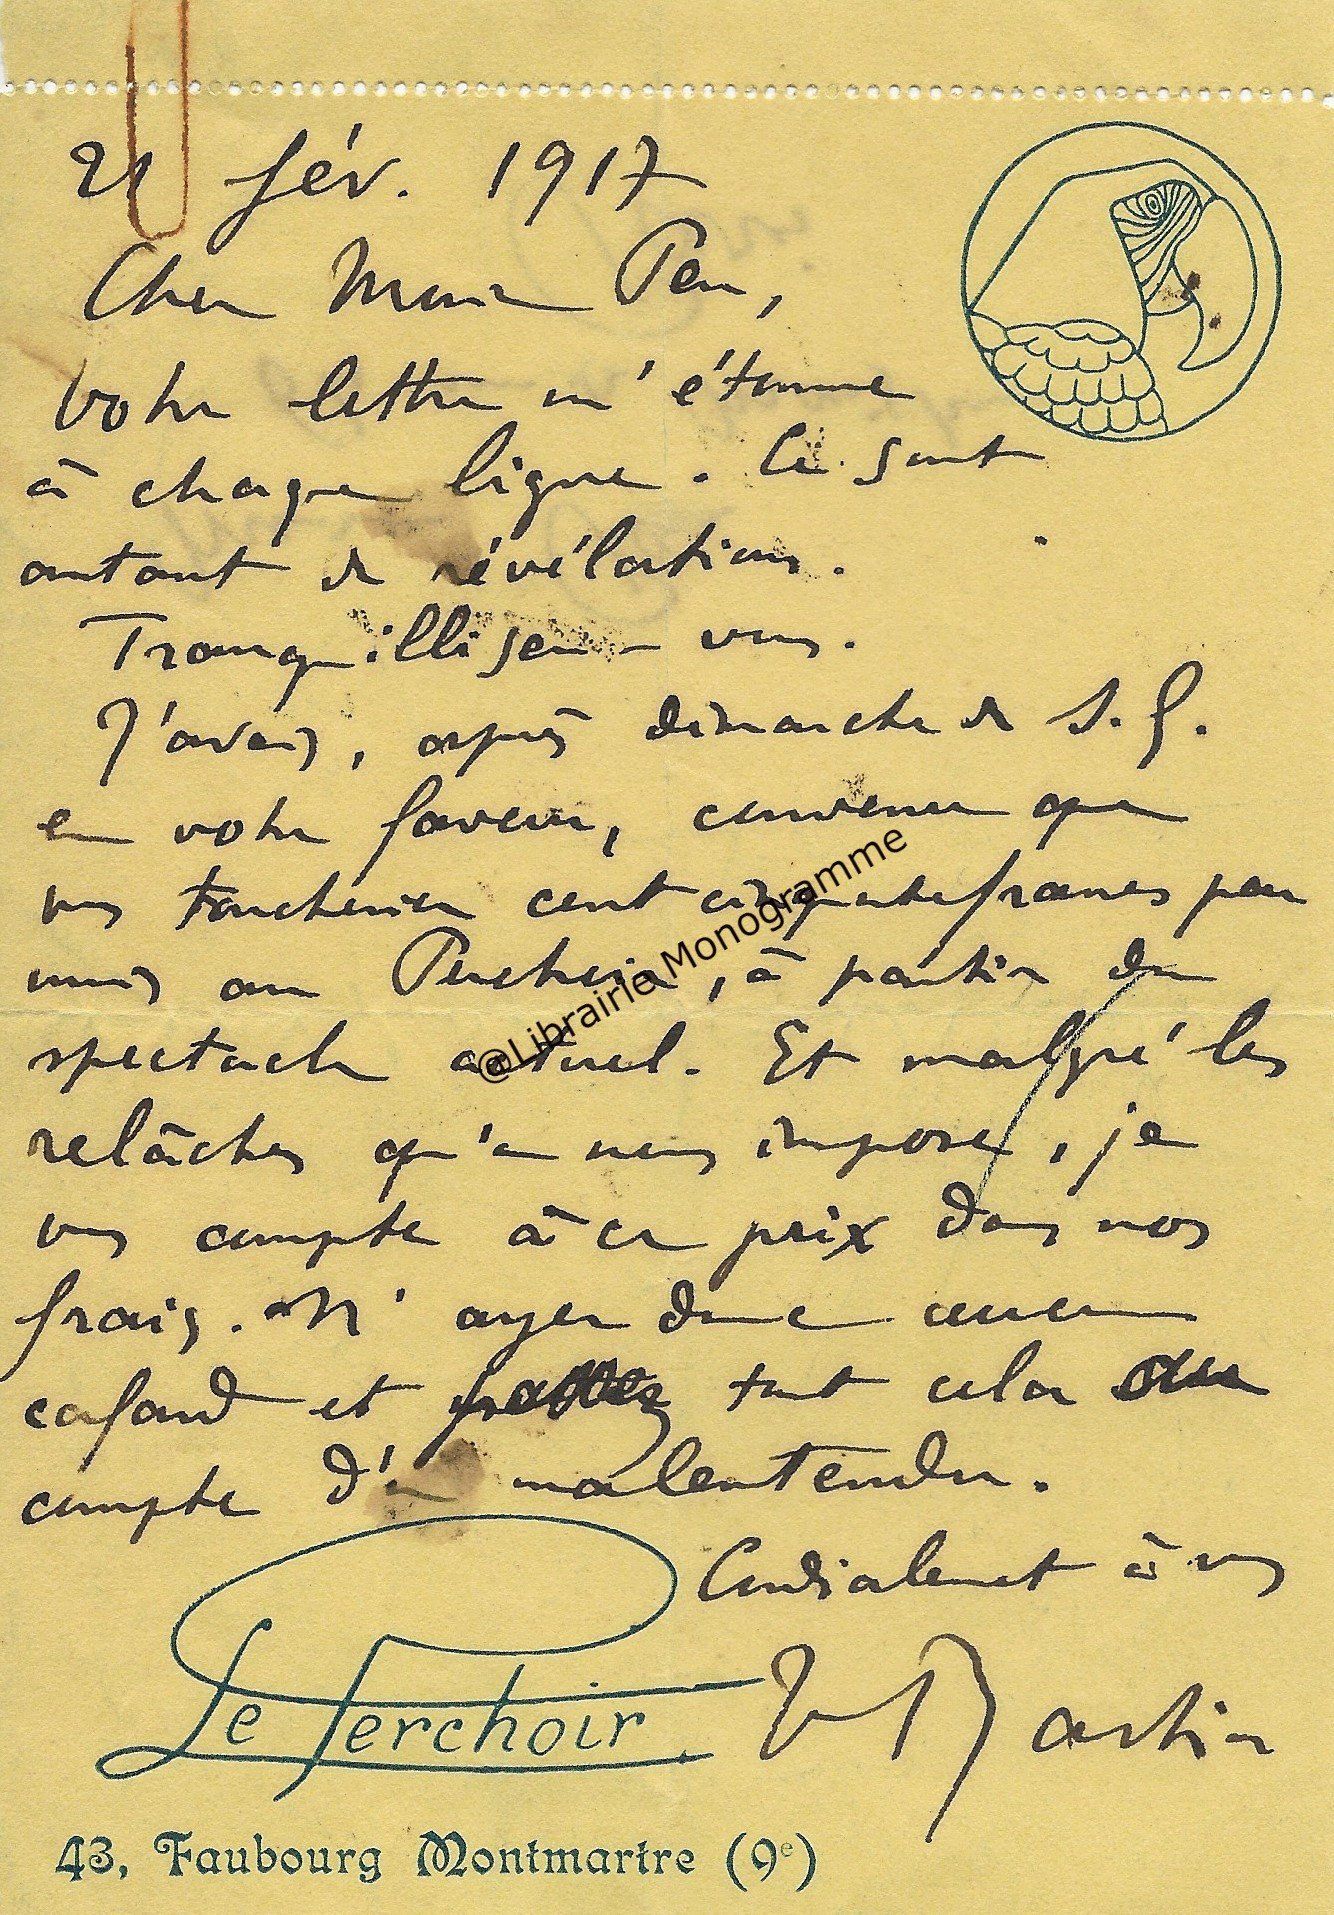 21 fév. 1917
Cher Monsieur Peu,
Votre lettre m'étonne
à chaque ligne. Ce sont
autant de révélations.
Tranquillisez-vous.
J'avais, après démarche de S. G.
en votre faveur, convenu que
vous toucheriez cent cinquante francs par
mois au Perchoir, à partir du
spectacle actuel. Et malgré les
relâches qu'on nous impose, je
vous compte à ce prix dans nos
frais. N'ayez donc aucun
cafard et mettez tout cela au
compte d'un malentendu.
Cordialement à vous
Martin
Le Perchoir.
43, Faubourg Montmartre (9e)
@Librairie Monogramme